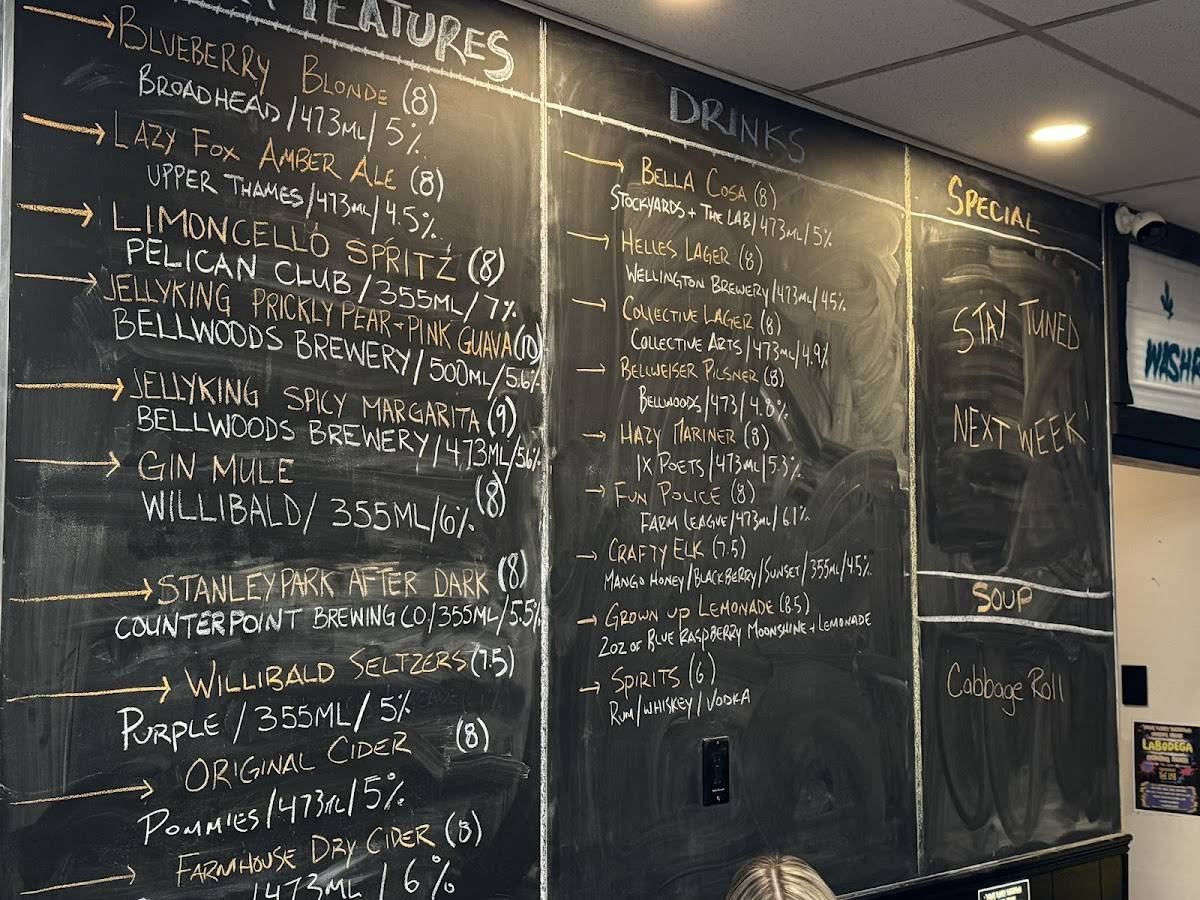 FEATURES
BLUEBERRY BLONDE (8)
BROADHEAD/473ML/5%
LAZY FOX AMBER ALE (8)
UPPER THAMES/473ML/4.5%
LIMONCELLO SPRITZ (8)
PELICAN CLUB/355ML/7%
JELLYKING PRICKLY PEAR+PINK GUAVA (10)
BELLWOODS BREWERY/500ML/5.6%
JELLYKING SPICY MARGARITA (9)
BELLWOODS BREWERY/473ML/5.6%
GIN MULE
WILLIBALD/355ML/6% (8)
STANLEY PARK AFTER DARK (8)
COUNTERPOINT BREWING CO./355ML/5.5%
WILLIBALD SELTZERS (7.5)
PURPLE/355ML/5%
ORIGINAL CIDER (8)
POMMIES/473ML/5%
FARMHOUSE DRY CIDER (8)
/473ML/6%
DRINKS
BELLA COSA (8)
STOCKYARDS + THE LAB/473ML/5%
HELLES LAGER (8)
WELLINGTON BREWERY/473ML/4.5%
COLLECTIVE LAGER (8)
COLLECTIVE ARTS/473ML/4.9%
BELLWEISER PILSNER (8)
BELLWOODS/473/4.8%
HAZY MARINER (8)
IX POETS/473ML/5.3%
FUN POLICE (8)
FARM LEAGUE/473ML/6.1%
CRAFTY ELK (7.5)
MANGO HONEY/BLACKBERRY/SUNSET/355ML/4.5%
GROWN UP LEMONADE (8.5)
2OZ OF BLUE RASPBERRY MOONSHINE + LEMONADE
SPIRITS (6)
RUM/WHISKEY/VODKA
SPECIAL
STAY TUNED
NEXT WEEK!
SOUP
Cabbage Roll
WASHR
LABODEGA